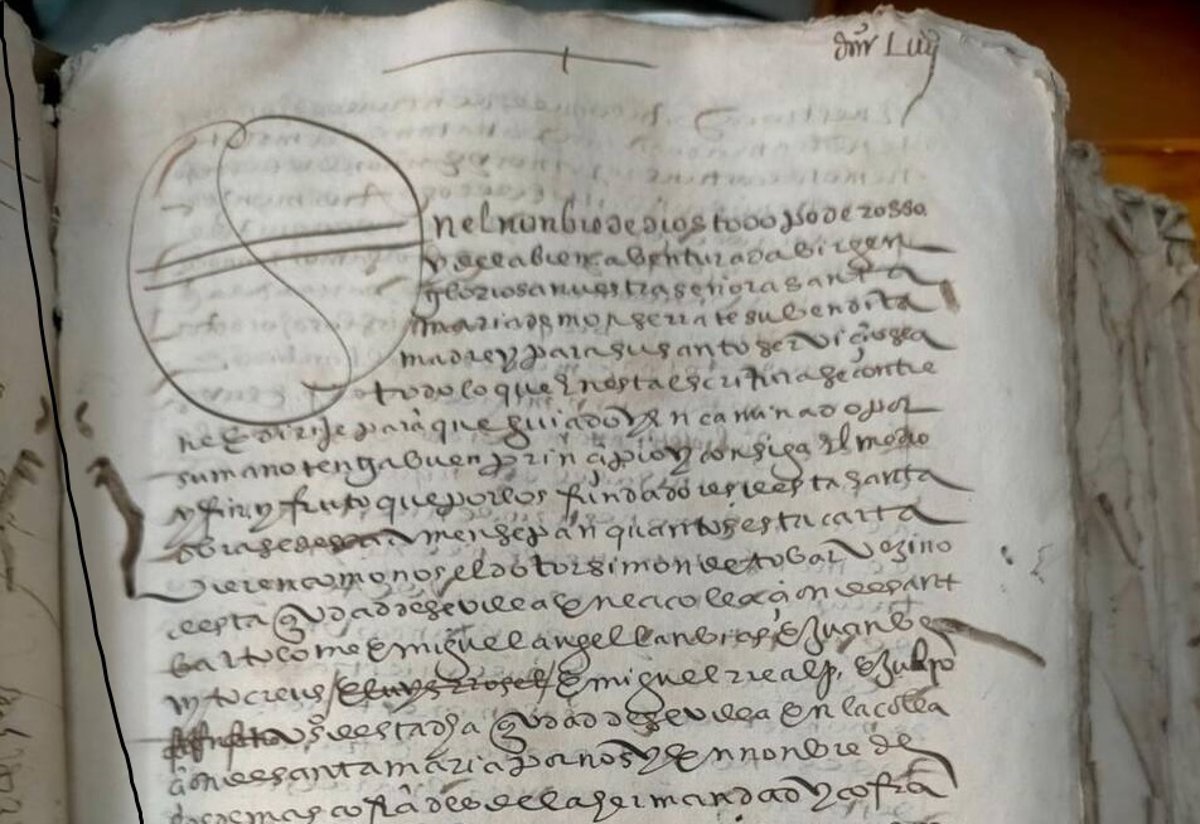 don Luys
En el nonbre de dios todo poderosso
y de la bienabenturada birgen
gloriosa nuestra señora santa
maria de monserrate su bendita
madre y para su santo servicio sea
todo lo que en esta escritura se contie
ne e dirije para que guiado y encaminado por
su mano tenga buen prinçipio y consiga el medio
y fin y fruto que por los fundadores de esta santa
obra se men sepan quantos esta carta
vieren como nos el dotor simon de tobar vezino
de esta çiudad de sevilla en la colaçion de sant
bartolome e miguel angel lanbias e Juan be
nito creus e miguel realp, e
vos de esta dha çiudad de sevilla en la colla
çion de santa maria por nos y en nonbre de
los demas cofrades de la hermandad y cofra